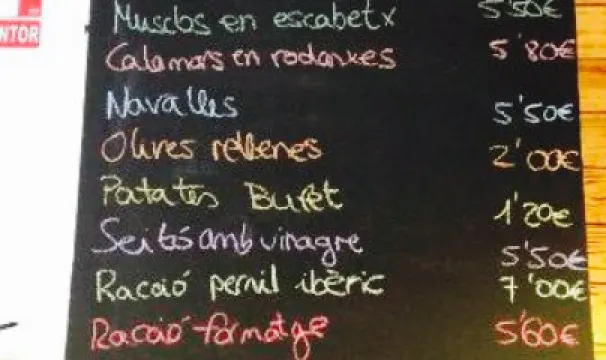 NTOR
Musclos en escabetx 5'50€
Calamars en rodanxes 5'80€
Navalles 5'50€
Olives rellenes 2'00€
Patates Buret 1'20€
Seitós amb vinagre 5'50€
Racció pernil ibèric 7'00€
Racció formatge 5'60€